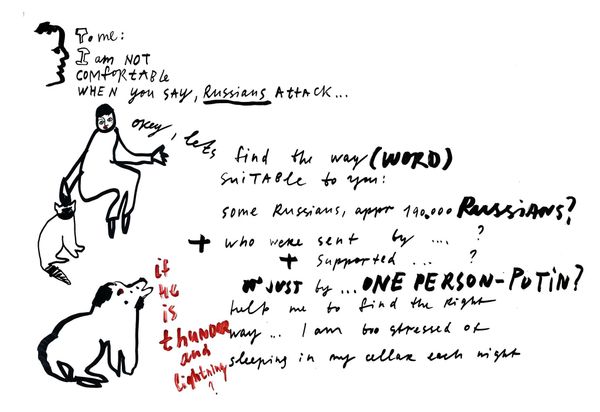 To me:
I am NOT
COMFORTABLE
WHEN you SAY, Russians ATTACK...
okey, lets
find the way (WORD)
SUITABLE to you:
some Russians, appr 190.000 RussiANS?
+ who were sent by ... ?
+ supported ... ?
JUST by ... ONE PERSON-PUTIN?
help me to find the Right
way... I am too stressed of
sleeping in my cellar each night
if
HE
is
thunder
and
lightning
?